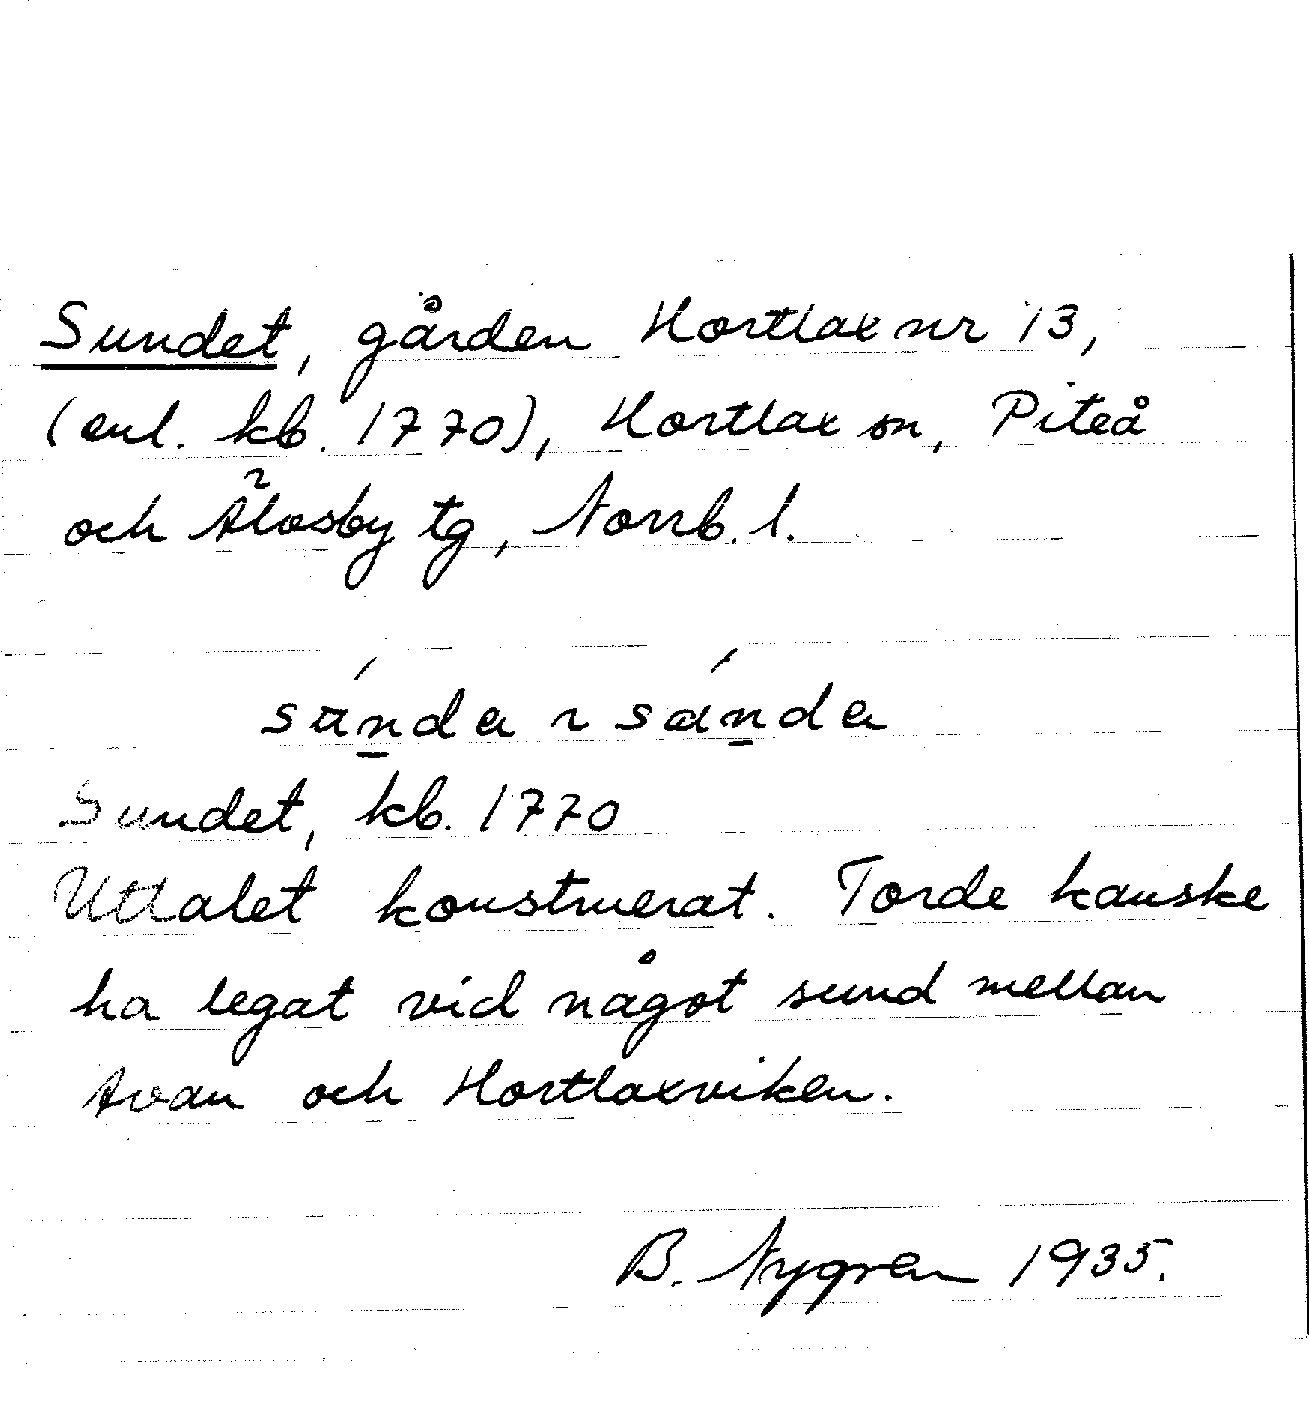 Sundet, gården Hortlax nr 13,
(enl. kb. 1770), Hortlax sn, Piteå
och Älvsby tg, Norrb. l.
Sundet, kb. 1770
Uttalet konstruerat. Torde kanske
ha legat vid något sund mellan
Avan och Hortlaxviken.
B. Nygren 1935.